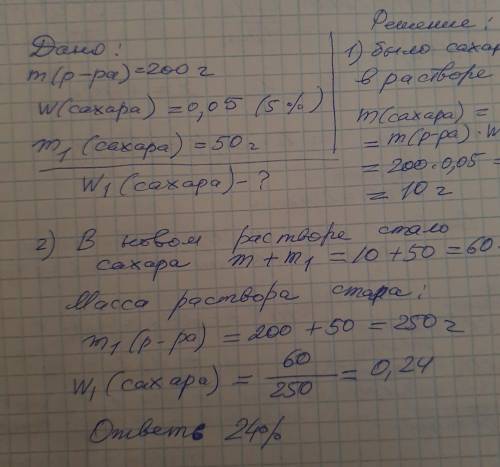 Дано:
m(р-ра)=200г
w(сахара) = 0,05 (5%)
m₁(сахара) = 50г
w₁(сахара) - ?
Решение:
1) было саха
в растворе
m(сахара) =
= m(р-ра)·w
= 200·0,05 =
= 10г
2) В новом растворе стало
сахара m + m₁ = 10 + 50 = 60
Масса раствора стала:
m₁(р-ра) = 200 + 50 = 250г
w₁(сахара) = 60/250 = 0,24
Ответ 24%